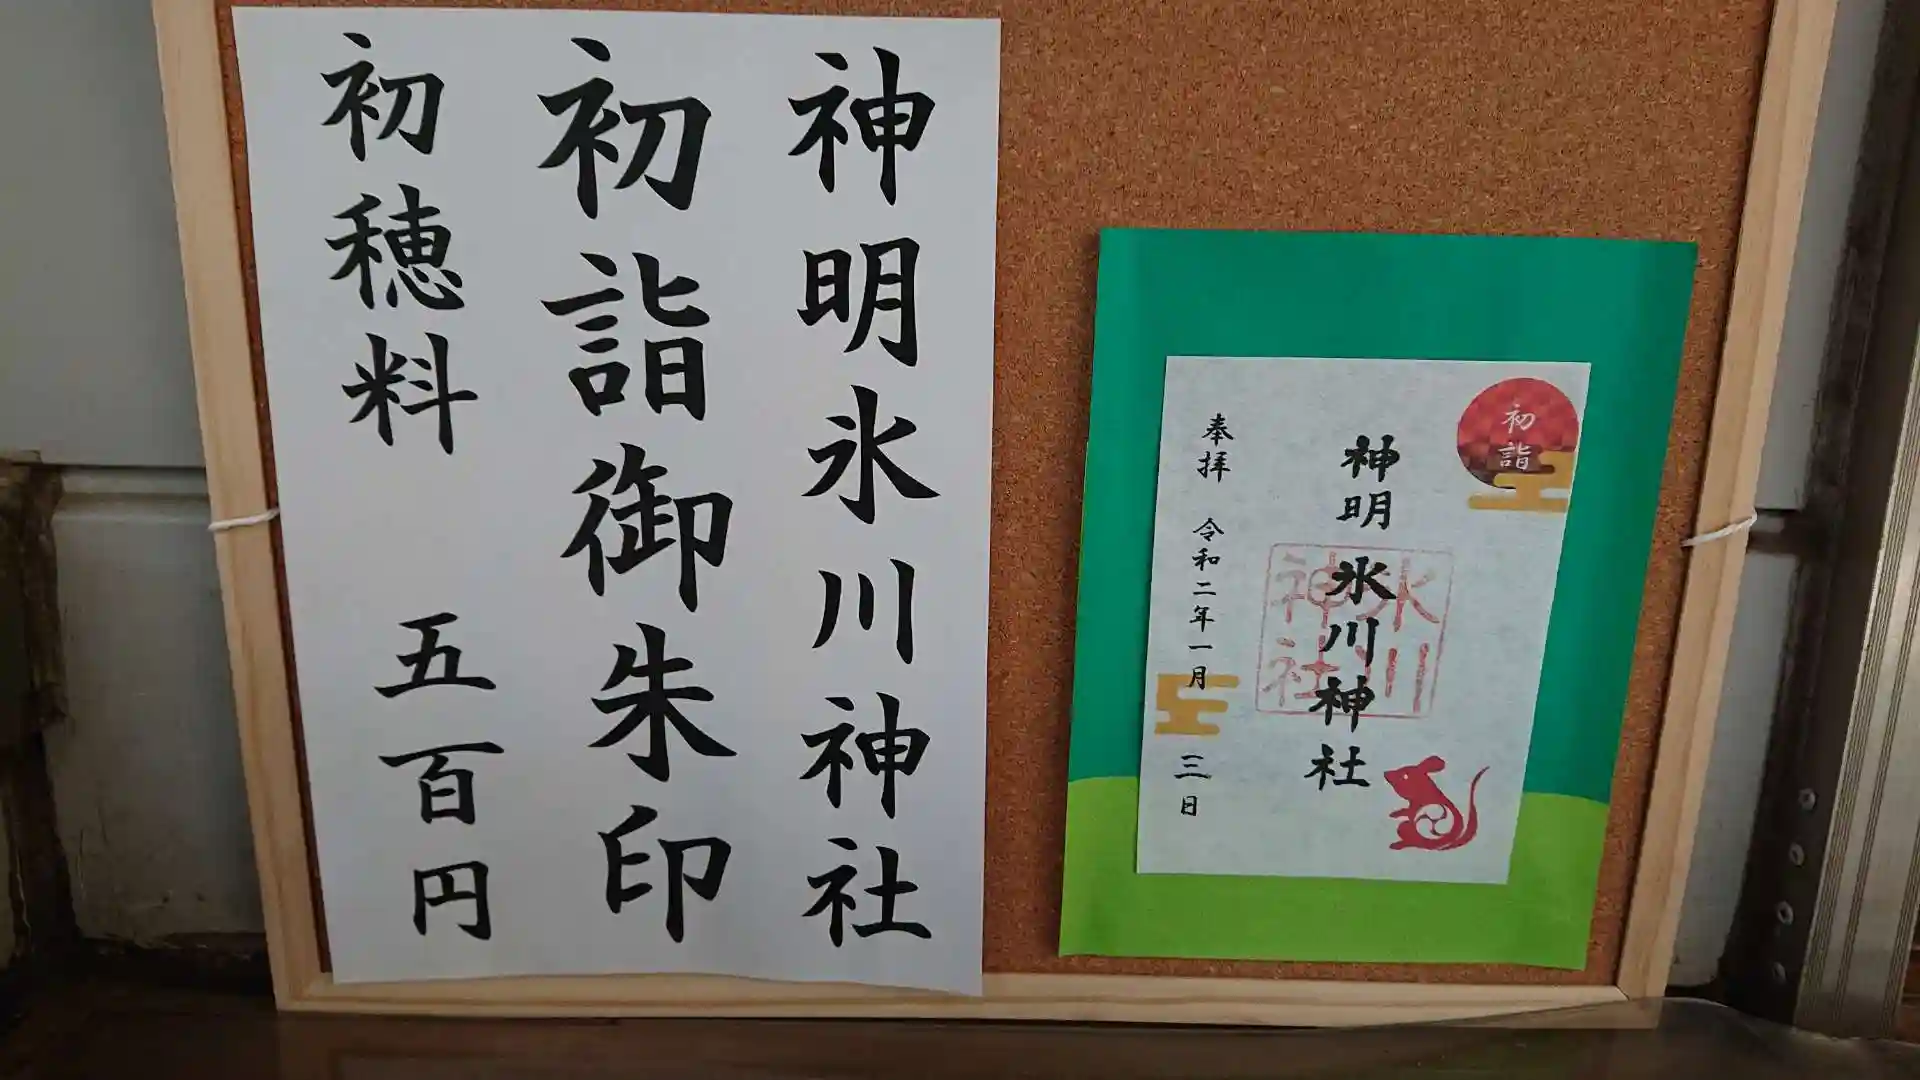 神明氷川神社
初詣御朱印
初穂料 五百円
初詣
神明氷川神社
氷川
神社
奉拝 令和二年一月三日